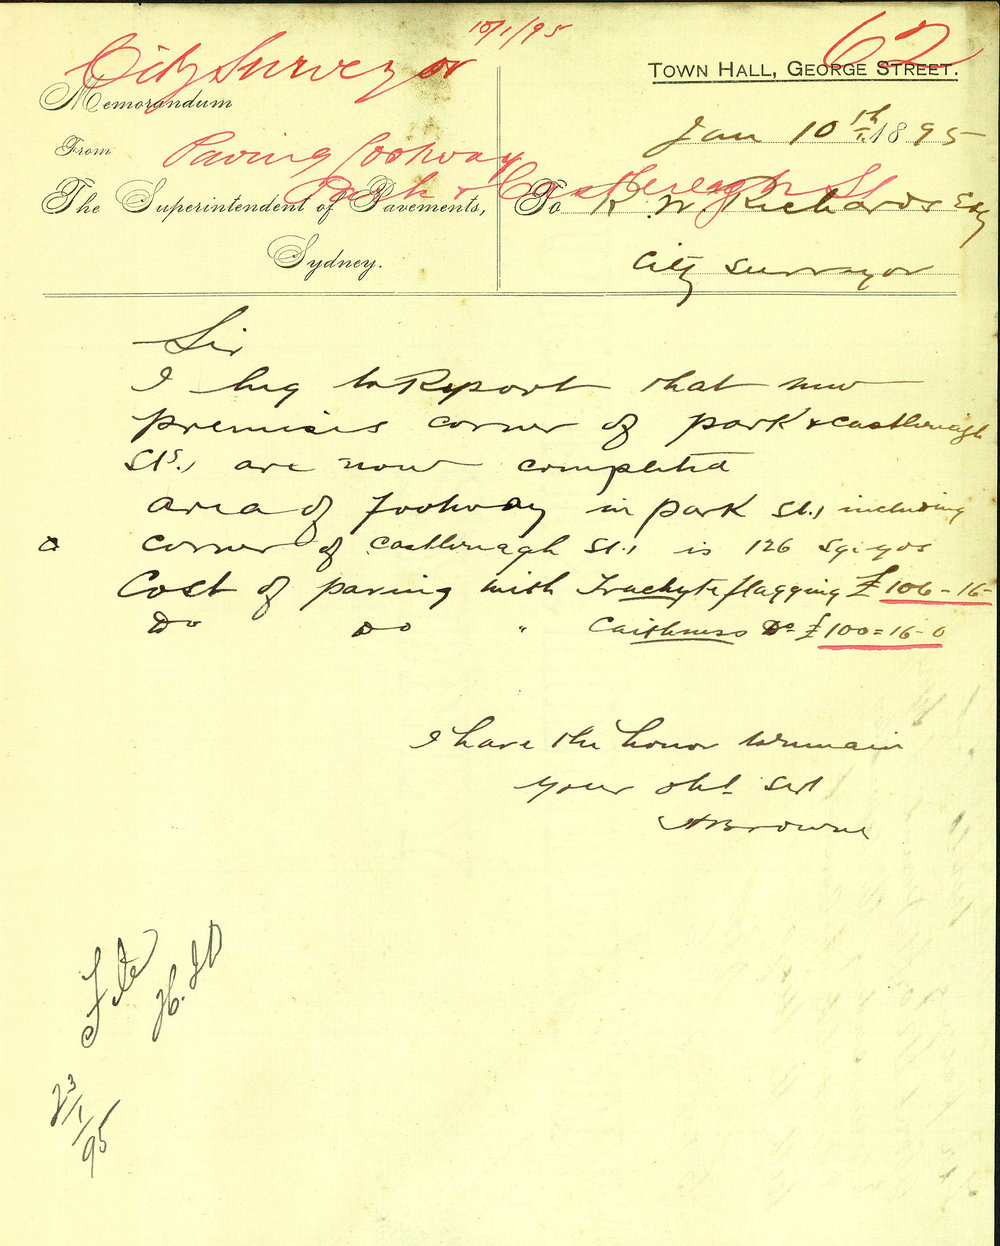 10/1/95
62
City Surveyor
Town Hall, George Street.
Memorandum
Jan 10th 1895
From
Paving footway
Park & Castlereagh St
The Superintendent of Pavements,
To R. W. Richards Esq
Sydney.
City Surveyor
Sir
I beg to Report that new
premises corner of park & castlereagh
Sts., are now completed
area of footway in park St., including
corner of castlereagh St., is 126 Sq. yds
Cost of paving with Trachyte flagging £106-16-
Do Do " Caithness Do £100=16-0
I have the honor to remain
Your obt Svt
ABrowne
File
23/1/95